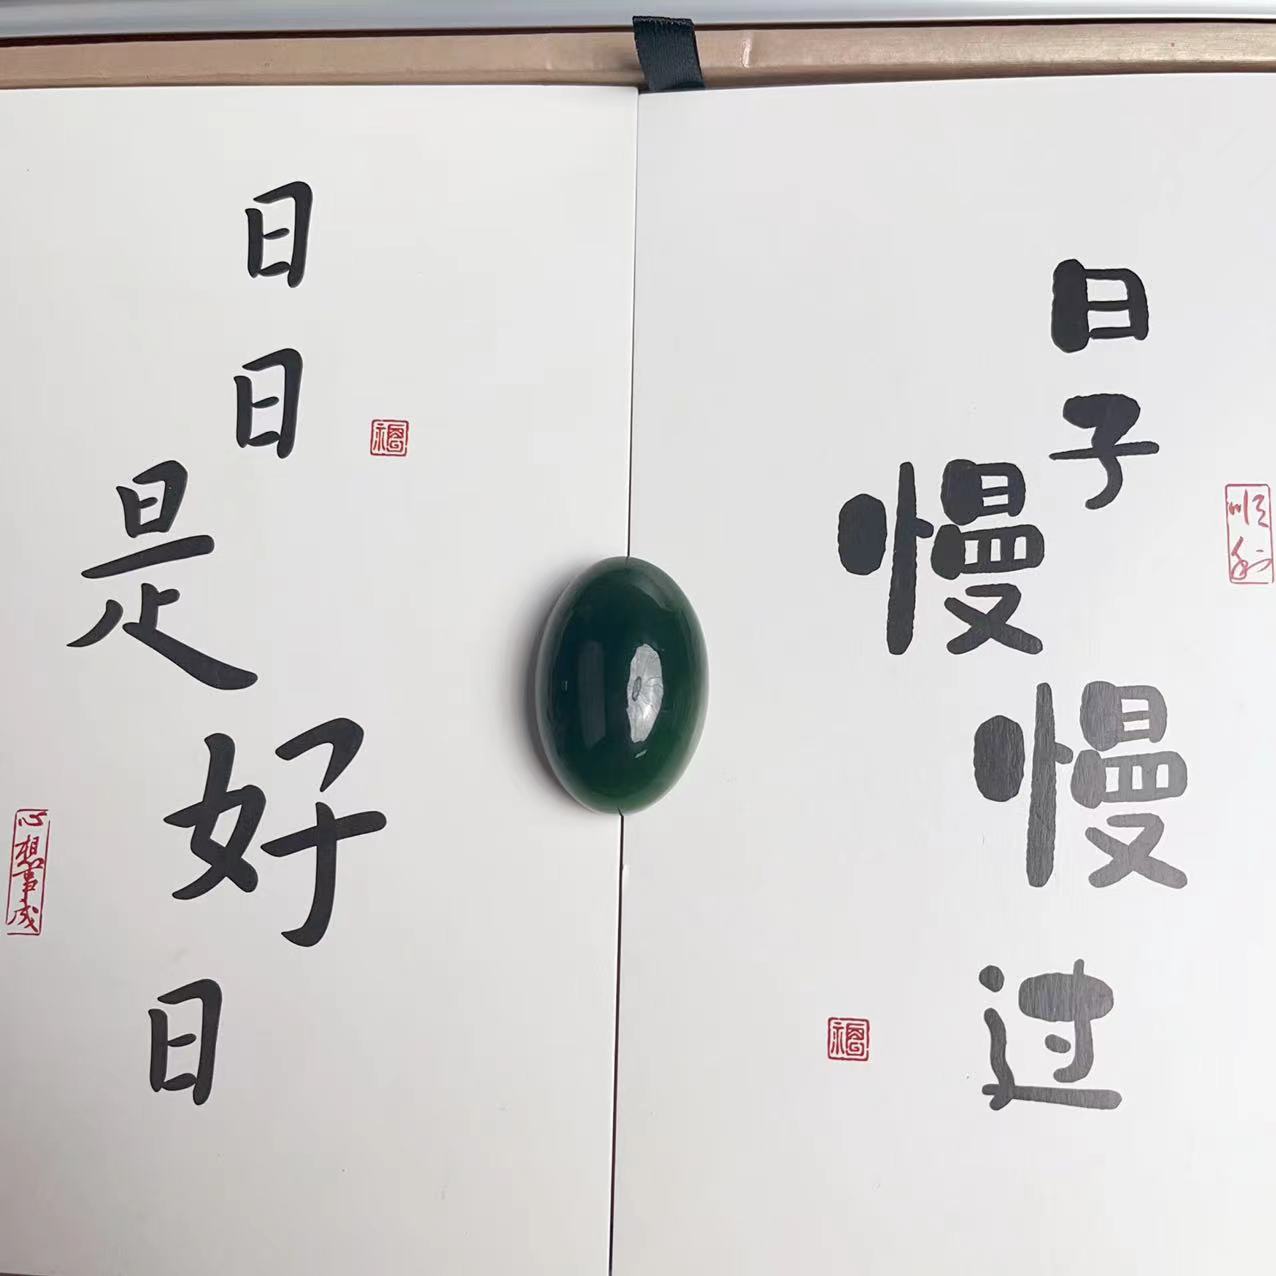 日日是好日
福
心想事成
日子慢慢过
顺利
福